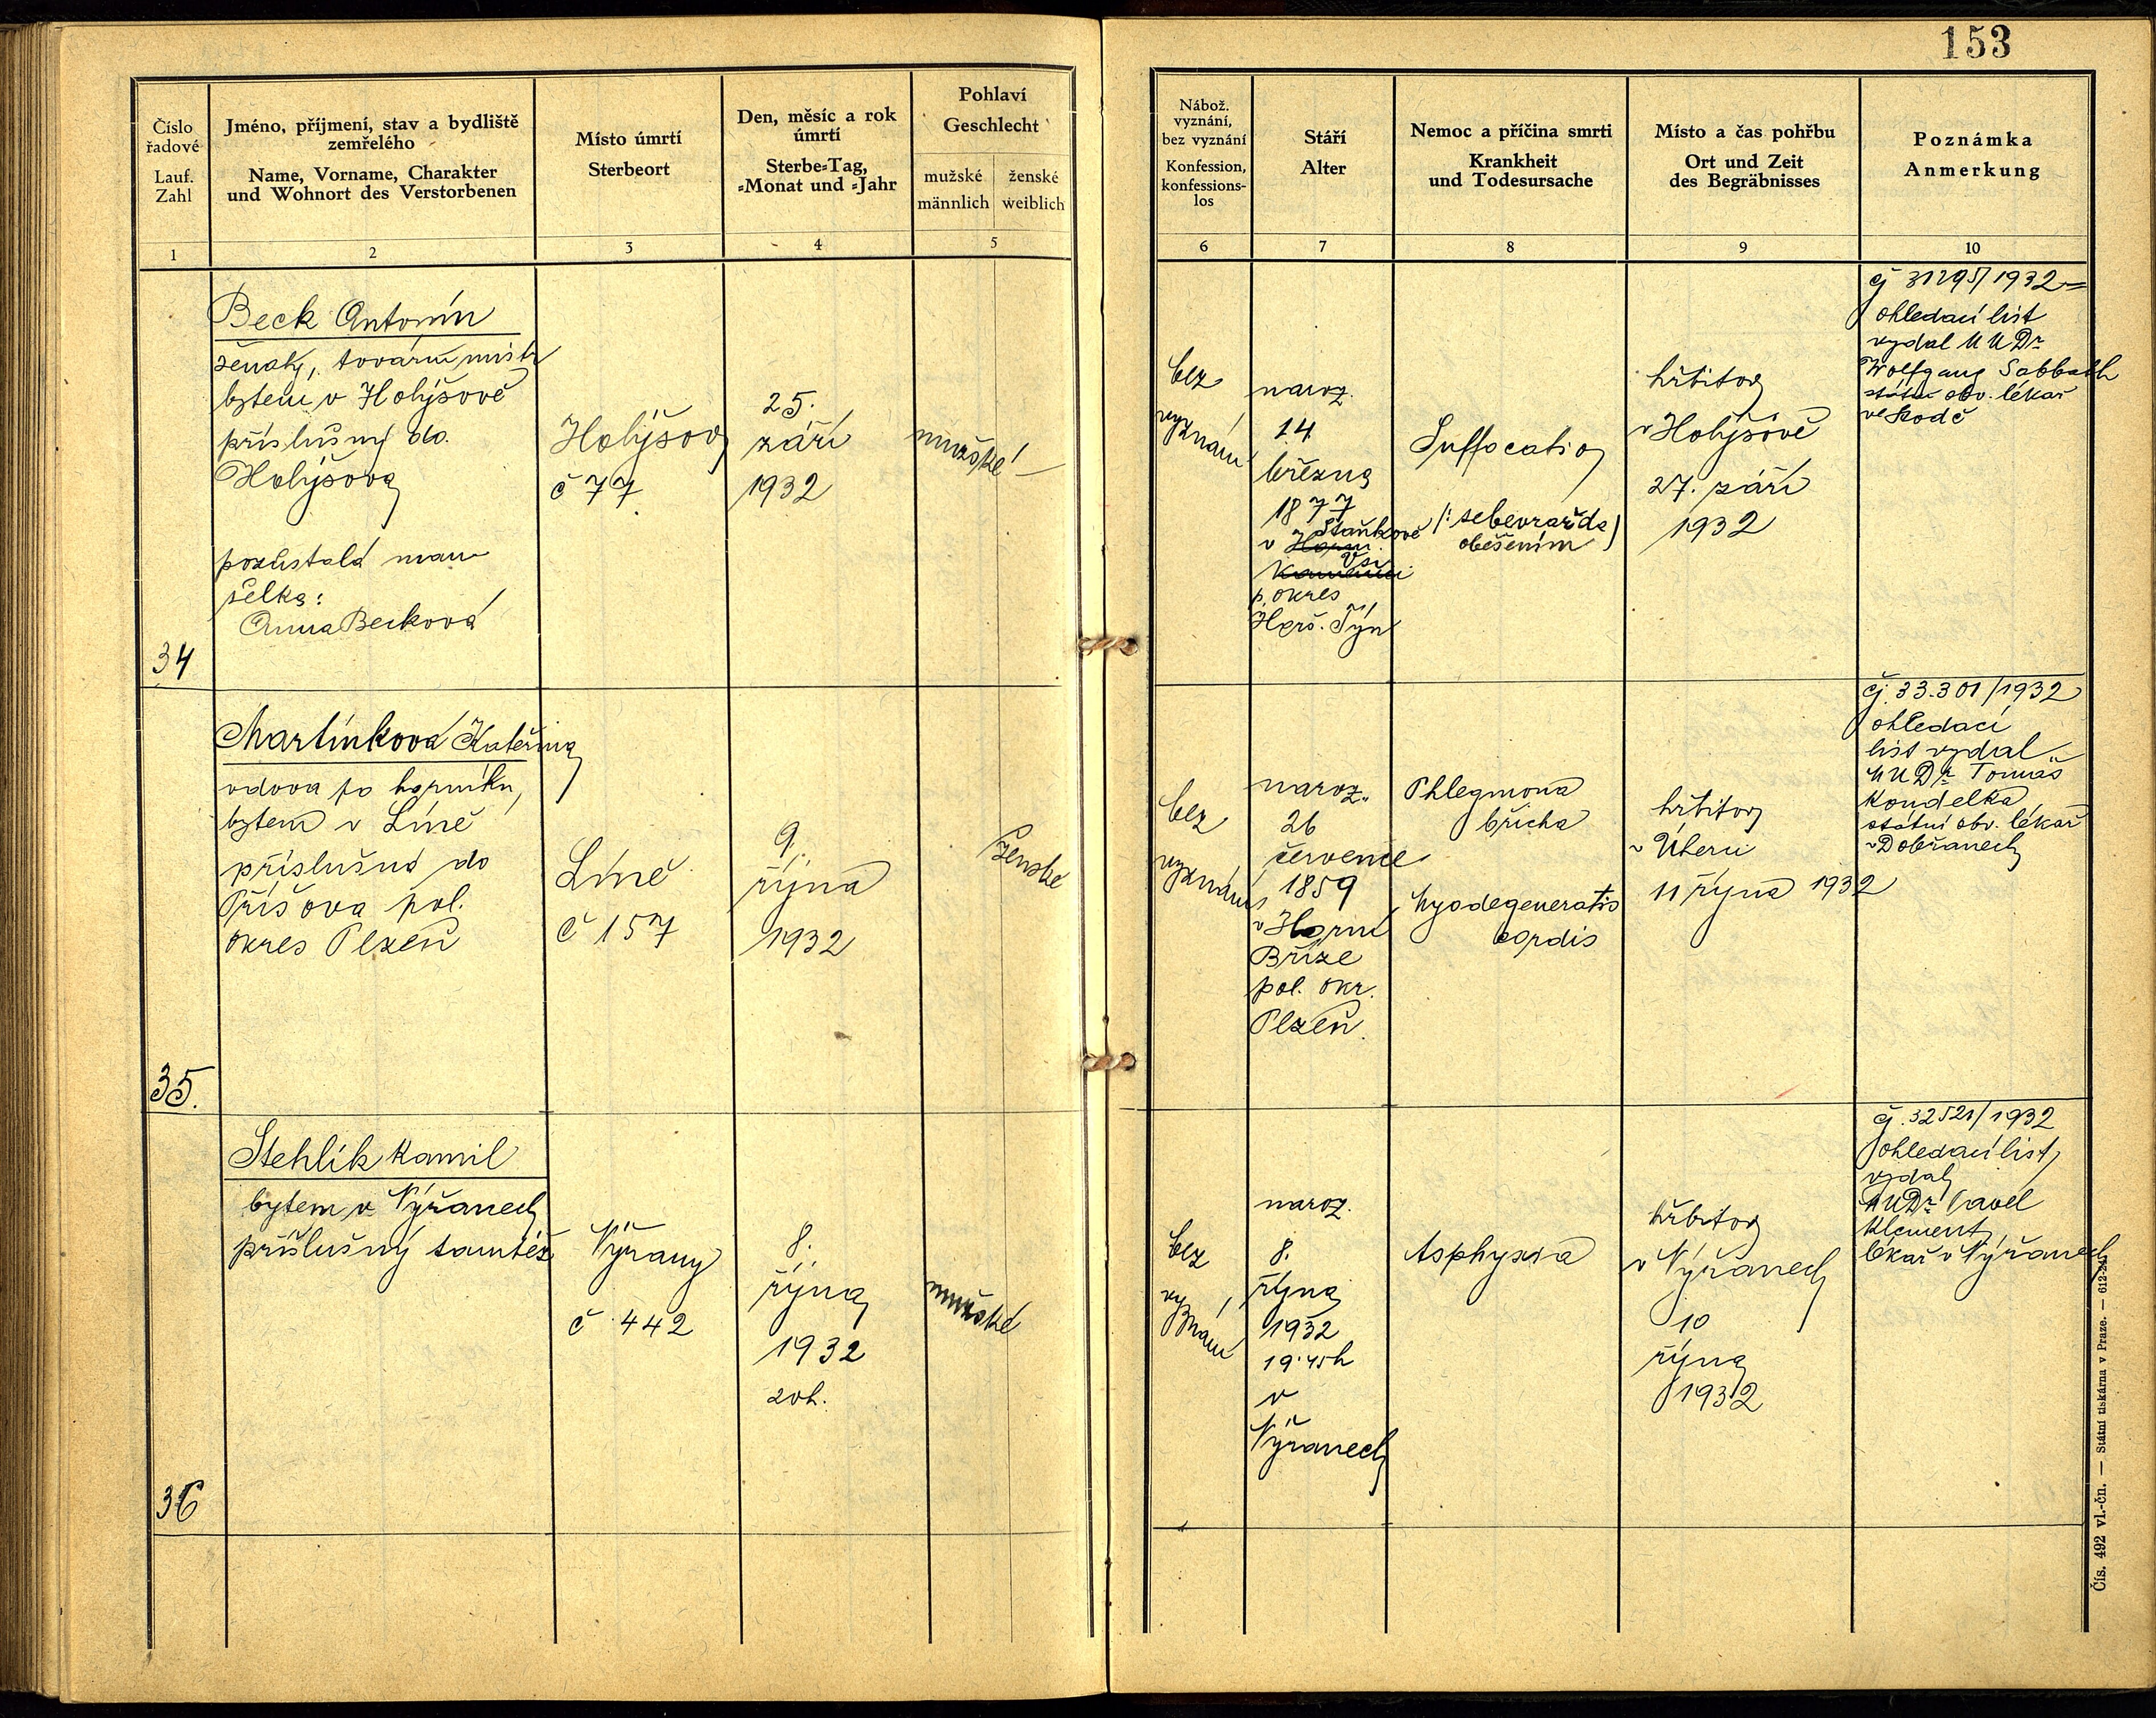 153
Číslo
řadové
Lauf.
Zahl
Jméno, příjmení, stav a bydliště
zemřelého
Name, Vorname, Charakter
und Wohnort des Verstorbenen
Místo úmrtí
Sterbeort
Den, měsíc a rok
úmrtí
Sterbe=Tag,
=Monat und =Jahr
Pohlaví
Geschlecht
mužské
männlich
ženské
weiblich
Nábož.
vyznání,
bez vyznání
Konfession,
konfessions-
los
Stáří
Alter
Nemoc a příčina smrti
Krankheit
und Todesursache
Místo a čas pohřbu
Ort und Zeit
des Begräbnisses
Poznámka
Anmerkung
1
2
3
4
5
6
7
8
9
10
34
Beck Antonín
ženatý, tovární mistr
bytem v Holýšově
příslušný do
Holýšova
pozůstalá man
želka:
Anna Becková
Holýšov
č 77
25.
září
1932
mužské
bez
vyznání
naroz.
14
března
1877
Staňkově
v Horní
Vsi
Kamenici
p. okres
Horš. Týn
Suffocatio
(: sebevražda
oběšením)
hřbitov
v Holýšově
27. září
1932
čj 31295/1932
ohledací list
vydal MUDr
Wolfgang Sabbath
státní obv. lékař
ve Stodě
35.
Martínková Kateřina
vdova po horníku,
bytem v Líně
příslušná do
Příšova pol.
okres Plzeň
Líně
č 157
9.
října
1932
ženské
bez
vyznání
naroz.
26
července
1859
v Horní
Bříze
pol. okr.
Plzeň
Phlegmona
břicha
Myodegeneratio
cordis
hřbitov
v Úherci
11 října 1932
čj. 33.301/1932
ohledací
list vydal
MUDr Tomáš
Koudelka
státní obv. lékař
v Dobřanech
36
Stehlík Kamil
bytem v Nýřanech
příslušný tamtéž
Nýřany
č 442
8.
října
1932
20h.
mužské
bez
vyznání
naroz.
8.
října
1932
19.45h
v
Nýřanech
Asphyxia
hřbitov
v Nýřanech
10
října
1932
čj. 32521/1932
ohledací list
vydal
MUDr Pavel
Klement,
lékař v Nýřanech
Čís. 492 vl.-čn. — Státní tiskárna v Praze. — 612-24